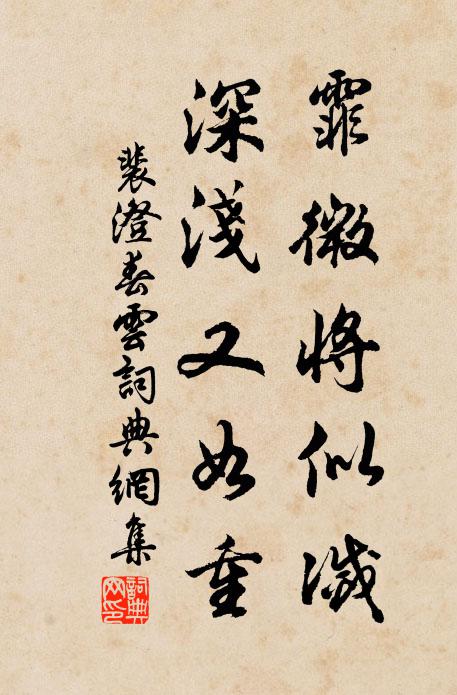 霏微將似滅
深淺又如重
裴澄春雲詞典網集
詞典网印